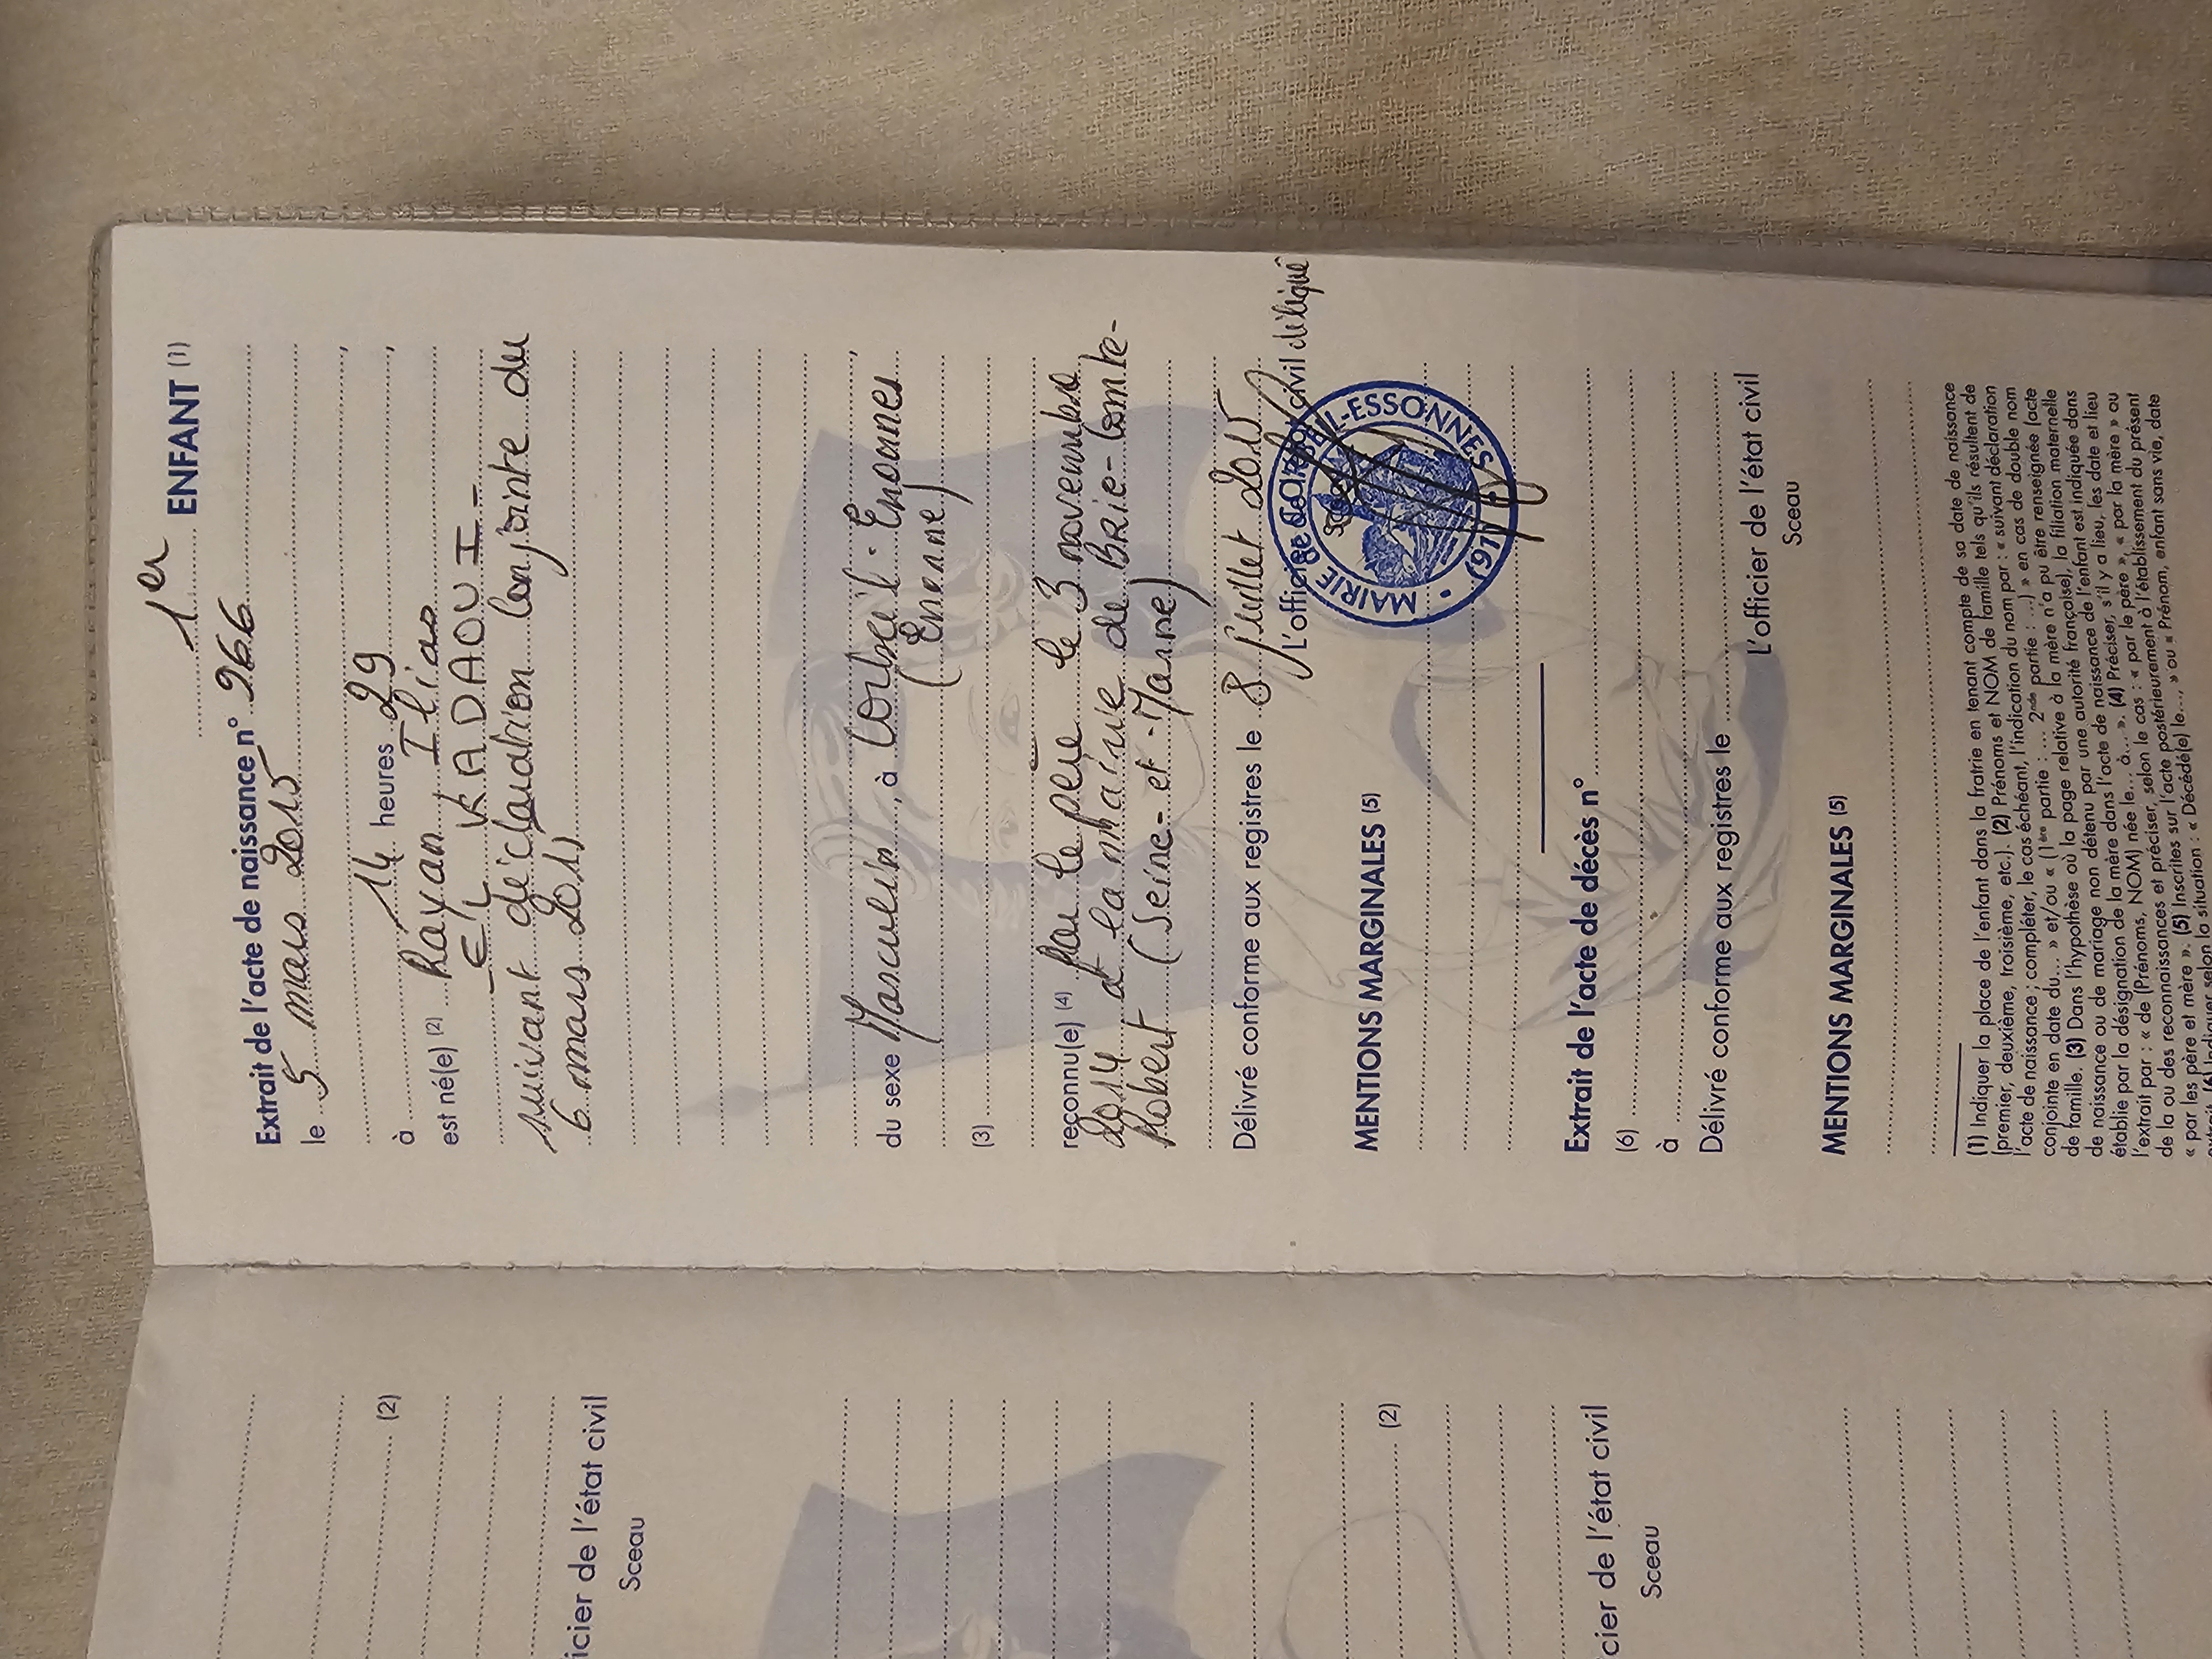 1er ENFANT (1)
Extrait de l'acte de naissance n° 266
le 5 mars 2015
à 14 heures 29
est né(e) (2) Rayan Ilias
EL KADAOUI
suivant déclaration conjointe du
6 mars 2015
du sexe Masculin, à Corbeil-Essonnes
(Essonne)
(3)
reconnu(e) (4) par le père le 3 novembre
2014 à la mairie de Brie-Comte-
Robert (Seine-et-Marne)
Délivré conforme aux registres le 8 juillet 2015
L'officier de l'état civil délégué
Sceau
MAIRIE de CORBEIL-ESSONNES (91)
MENTIONS MARGINALES (5)
Extrait de l'acte de décès n°
(6)
à
Délivré conforme aux registres le
L'officier de l'état civil
Sceau
MENTIONS MARGINALES (5)
(1) Indiquer la place de l'enfant dans la fratrie en tenant compte de sa date de naissance
(premier, deuxième, troisième, etc.). (2) Prénoms et NOM de famille tels qu'ils résultent de
l'acte de naissance ; compléter, le cas échéant, l'indication du nom par : « suivant déclaration
conjointe en date du... » et/ou « (1ère partie : .... 2nde partie : ....) » en cas de double nom
de famille. (3) Dans l'hypothèse où la page relative à la mère n'a pu être renseignée (acte
de naissance ou de mariage non détenu par une autorité française), la filiation maternelle
établie par la désignation de la mère dans l'acte de naissance de l'enfant est indiquée dans
l'extrait par : « de (Prénoms, NOM) née le... à... ». (4) Préciser, s'il y a lieu, les date et lieu
de la ou des reconnaissances et préciser, selon le cas : « par le père », « par la mère » ou
« par les père et mère ». (5) Inscrites sur l'acte postérieurement à l'établissement du présent
extrait. (6) Indiquer selon la situation : « Décédé(e) le..., » ou « Prénom, enfant sans vie, date
(2)
icier de l'état civil
Sceau
(2)
cier de l'état civil
Sceau